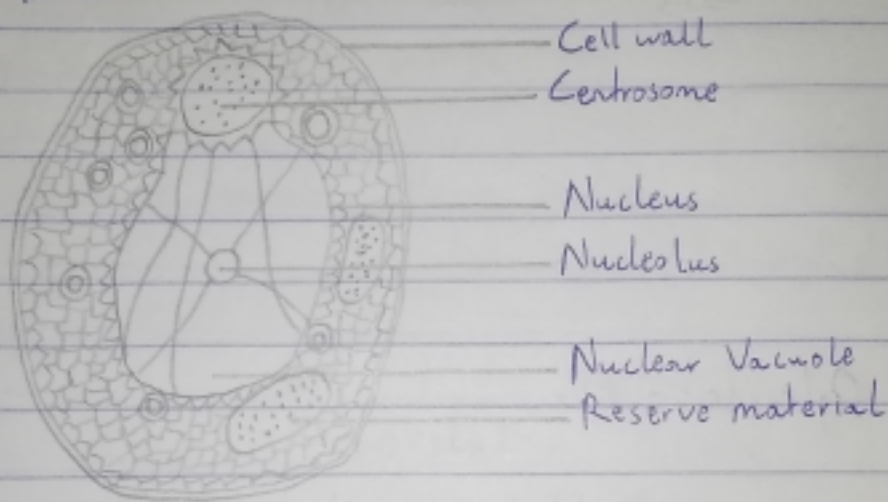 Cell wall
Centrosome
Nucleus
Nucleolus
Nuclear Vacuole
Reserve material